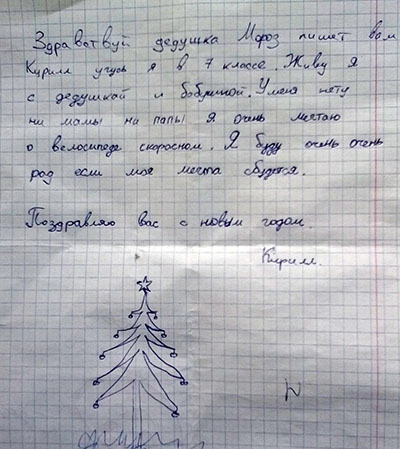 Здравствуй дедушка Мороз пишет вам
Кирилл учусь я в 7 классе. Живу я
с дедушкай и бабушкой. У меня нету
ни мамы на папы я очень мечтаю
о велосипеде скоросном. Я буду очень очень
рад если моя мечта сбудется.
Поздравляю вас с новым годом.
Кирилл.